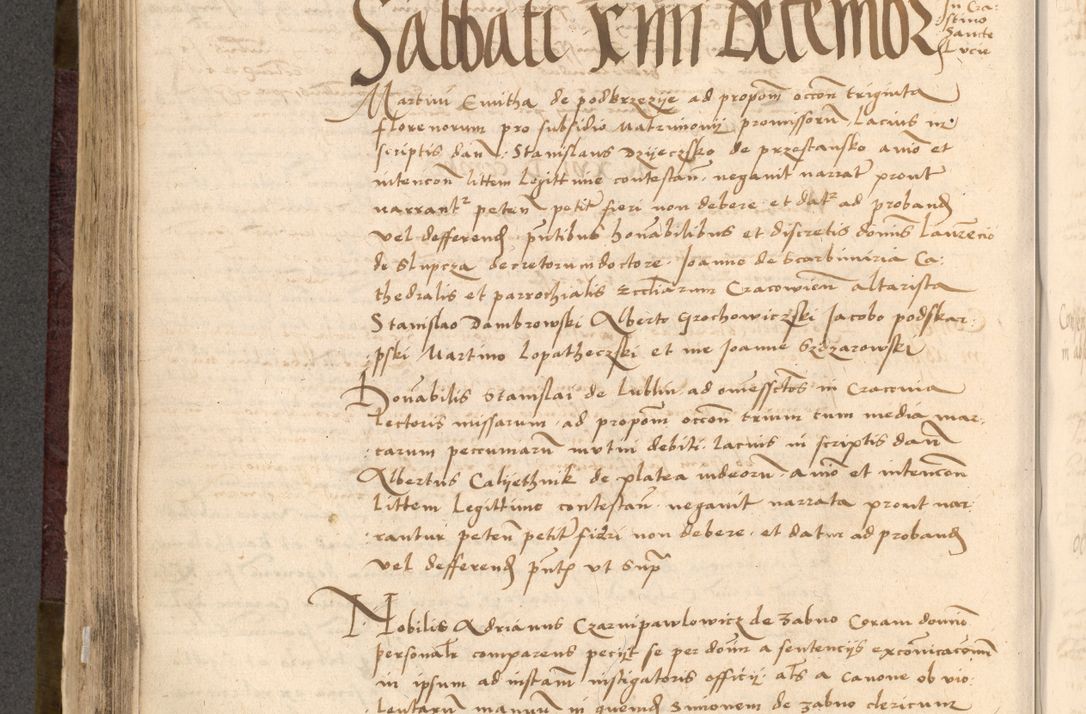 Sabbati xiiii decembr
In Cra:
stino
Sancte
Lucie
Martini Cmitha de podkrzezije ad propom occon triginta
florenorum pro subsidio Matrimonij promissorum lacius in
scriptis dan. Stanislaus Dzijeczsko de przestansko a nio et
intencon littem legittime contestan. negavit narrat prout
narrantr peten petit fieri non debere et datr ad proband
vel defferend pntibus honabilibus et discretis domis Laurencio
de Slupcza decretorum doctore. Joanne de Scarbimiria Ca:
thedralis et parrochialis Eccliarum Cracovien altarista
Stanislao Dambrowski Alberto Grochowiczski Jacobo podskar:
:pski Martino Lopatheczski et me Joanne Szdzarowski
Honabilis Stanislai de Lublin ad omessctos in Cracovia
Lectoris missarum. ad propom occon trium cum media mar:
:carum pecuniarum mutui debiti. lacius in scriptis dan
Albertus Calijethnik de platea iudeorum. a nio et intencon
littem legittime contestan. negavit narrata prout nar:
:rantur peten petit fieri non debere. et datur ad proband
vel defferend pntp ut Supra
Nobilis Adrianus Czarnipawlowicz de Zabno Coram domino
personalr comparens pecijt se per doum a sentencijs exconicacionum
in ipsum ad instam instigatoris officij. als a Canone ob vio:
lentarum manuum in quendam Simonem de Zabno clericum